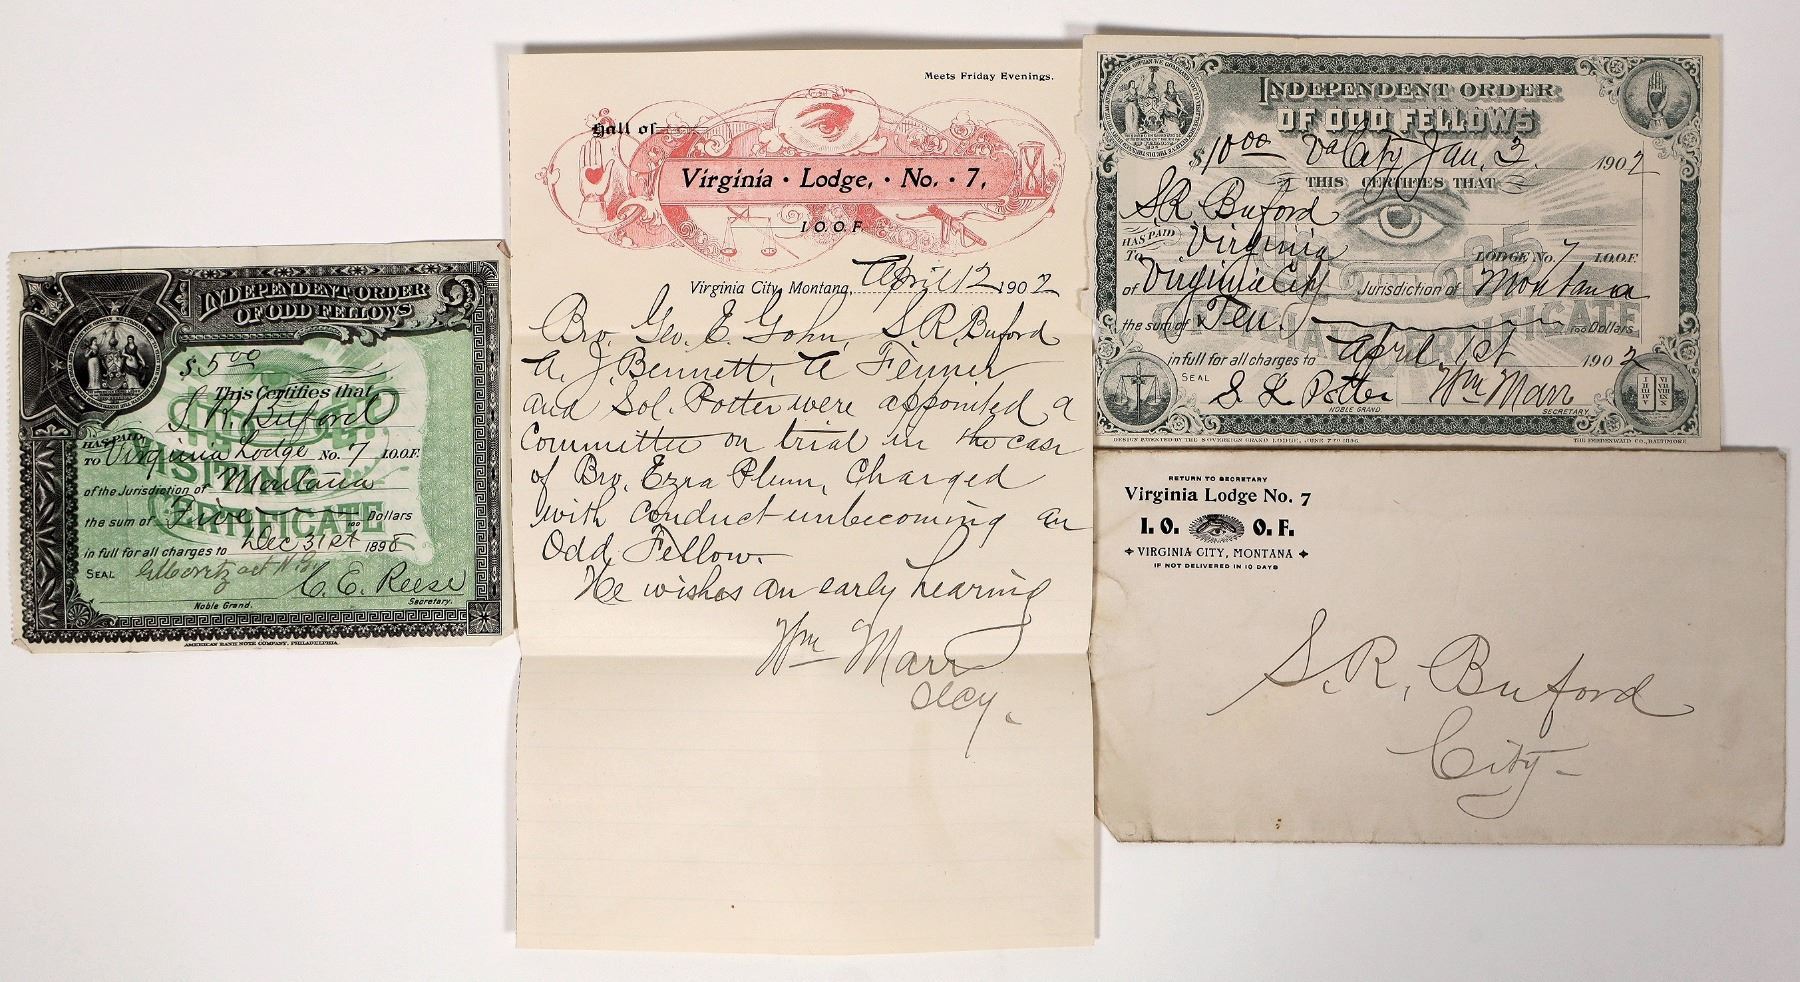 INDEPENDENT ORDER
OF ODD FELLOWS
$5.00
This Certifies that
S. R. Buford
HAS PAID
TO Virginia Lodge No. 7 I.O.O.F.
VISITING
of the Jurisdiction of Montana
CERTIFICATE
the sum of Five 100 Dollars
in full for all charges to Dec 31st 1898
SEAL
C. E. Reese
Noble Grand. Secretary.
AMERICAN BANK NOTE COMPANY, PHILADELPHIA.
Meets Friday Evenings.
Hall of
Virginia · Lodge, · No. · 7,
I.O.O.F.
Virginia City, Montana, April 12 1902
Bro. Geo. E. Gohn, S. R. Buford
A. J. Bennett, A Fenner
and Sol. Potter were appointed a
Committee on trial in the case
of Bro. Ezra Plum, Charged
with Conduct unbecoming an
Odd Fellow.
He wishes an early hearing
Wm Marr
Secy.
INDEPENDENT ORDER
OF ODD FELLOWS
$10.00 Va City Jan. 2. 1902
THIS CERTIFIES THAT
S R Buford
HAS PAID
To Virginia LODGE No. 7 I.O.O.F.
of Virginia City Jurisdiction of Montana
OFFICIAL CERTIFICATE
the sum of Ten. 100 Dollars
in full for all charges to April 1st 1902
SEAL
S. L Potter Wm Marr
NOBLE GRAND SECRETARY.
DESIGN PATENTED BY THE SOVEREIGN GRAND LODGE, JUNE 7TH 1896. THE FRIEDENWALD CO., BALTIMORE
RETURN TO SECRETARY
Virginia Lodge No. 7
I. O. O. F.
VIRGINIA CITY, MONTANA
IF NOT DELIVERED IN 10 DAYS
S. R. Buford
City-